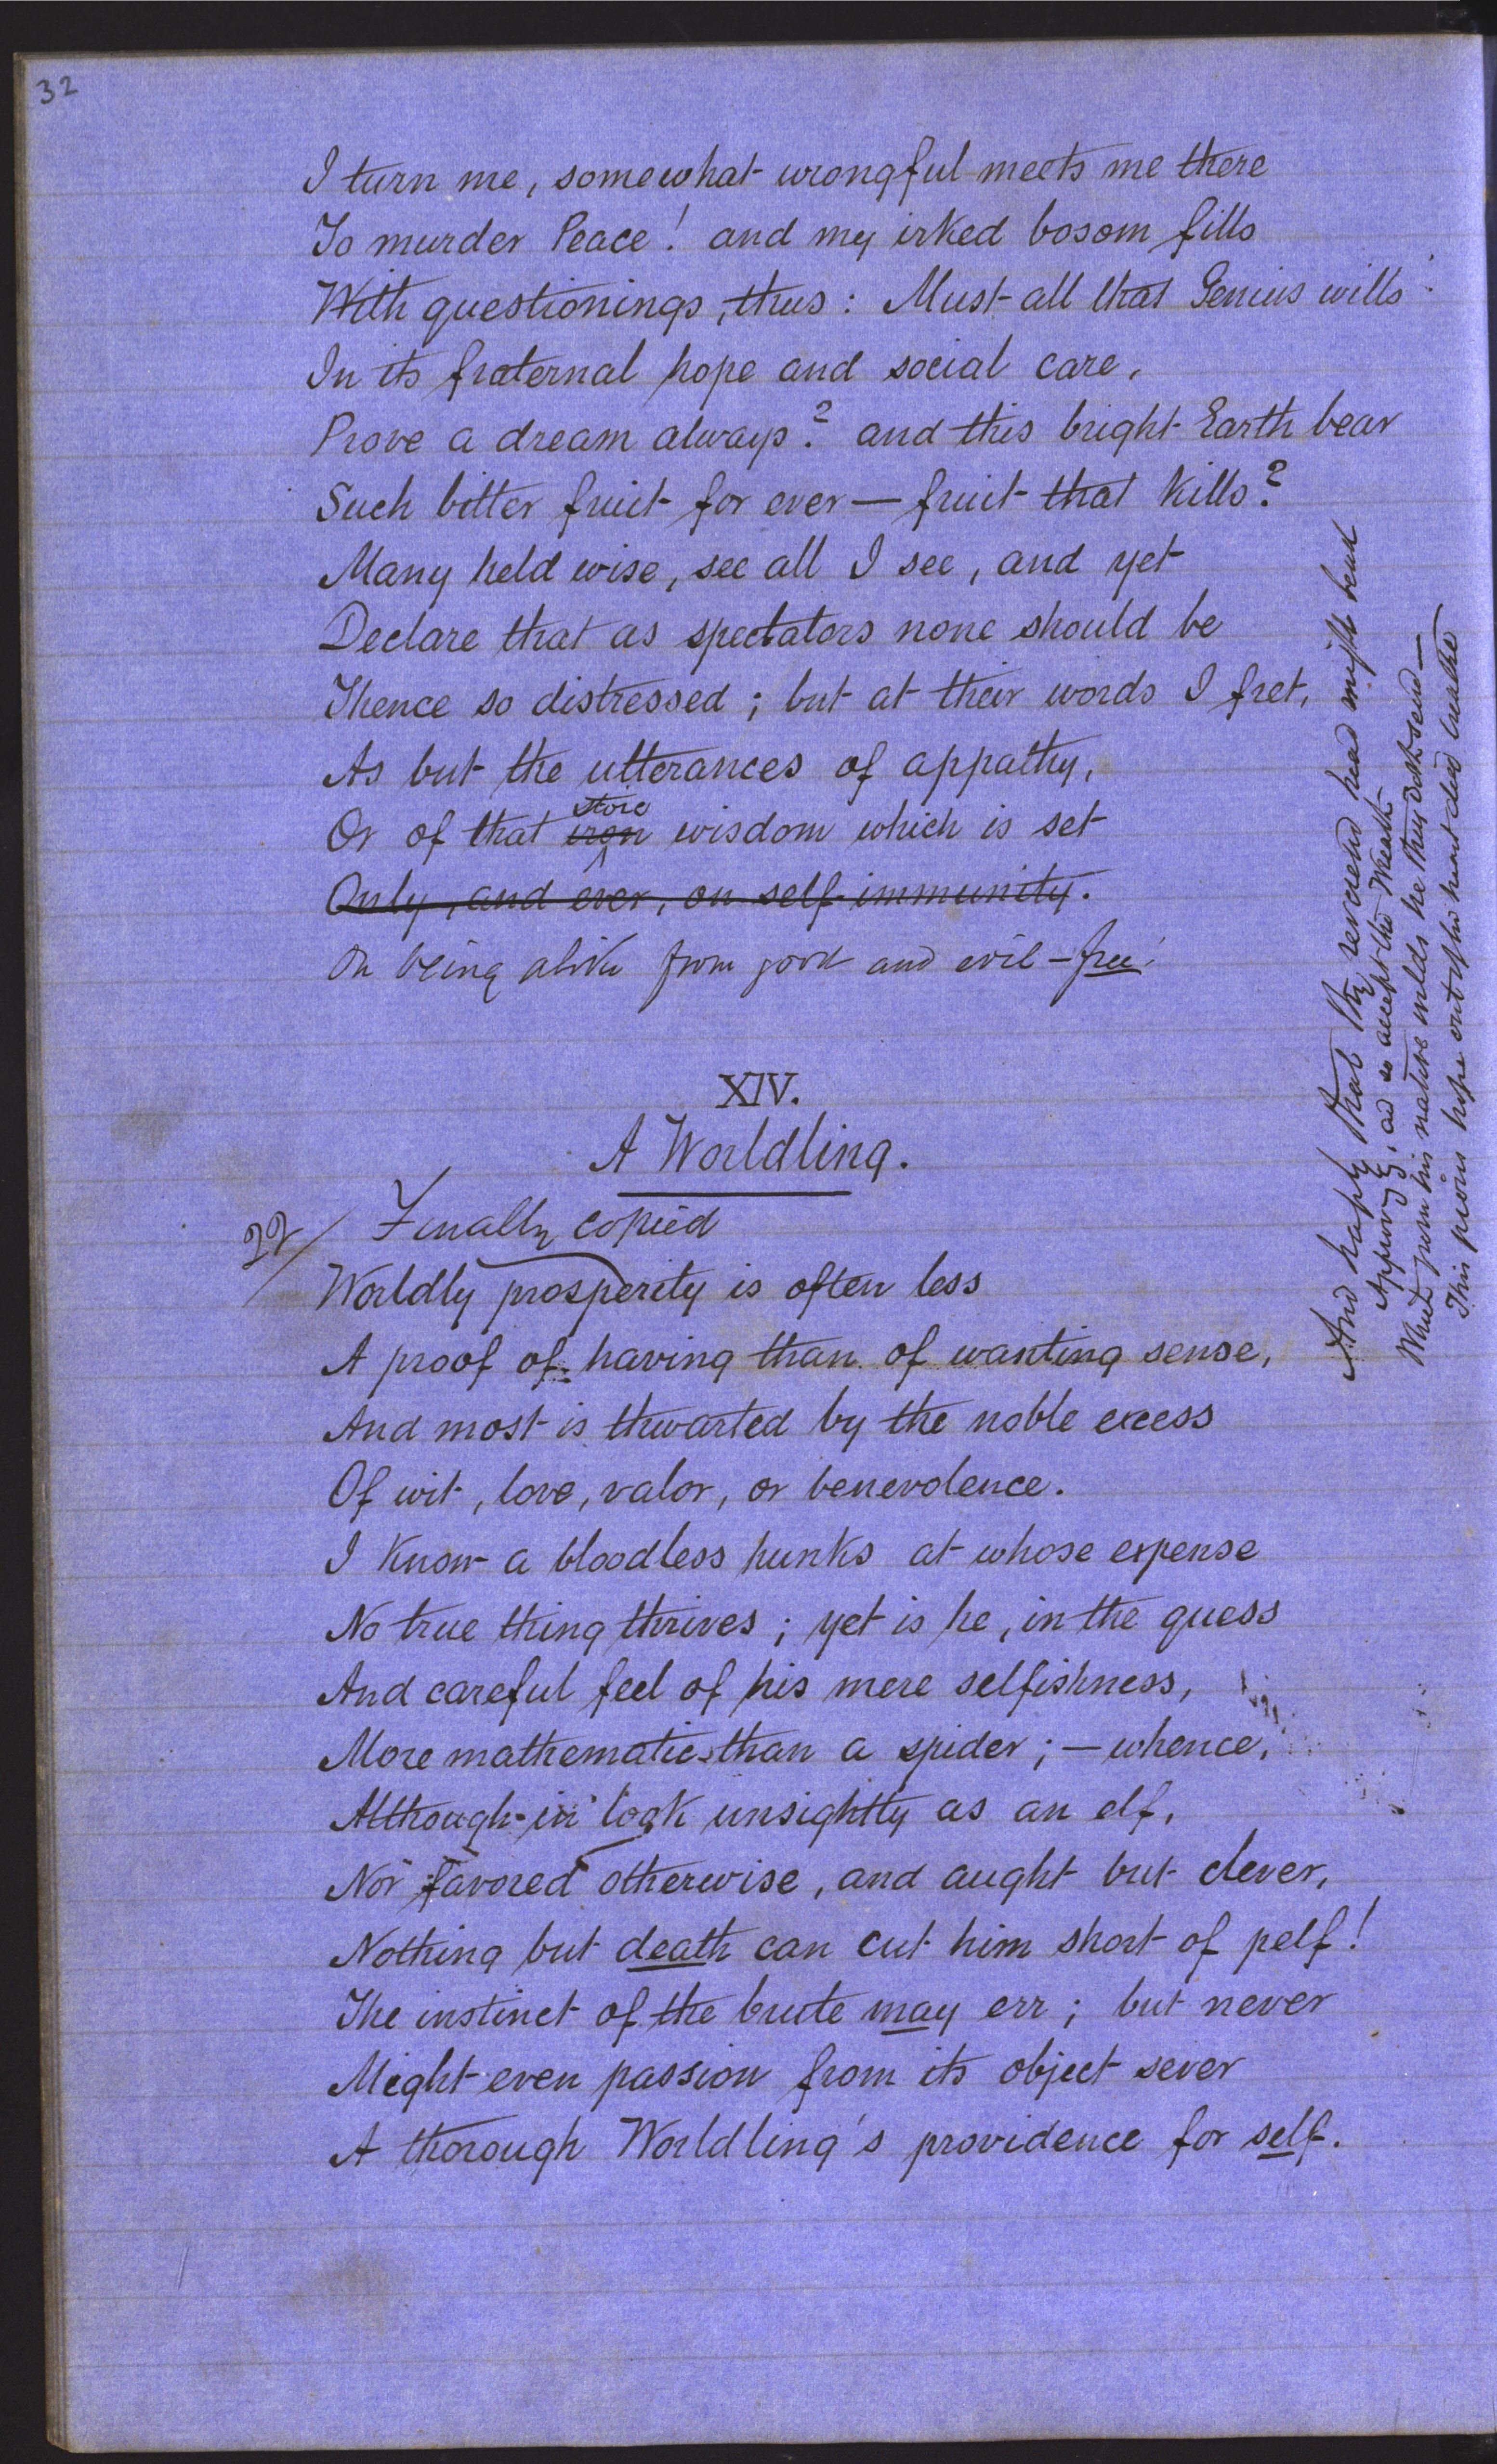 32
I turn me, somewhat wrongful meets me there
To murder Peace! and my irked bosom fills
With questionings, thus: Must all that Genius wills
In its fraternal hope and social care,
Prove a dream always? and this bright Earth bear
Such bitter fruit for ever — fruit that kills?
Many held wise, see all I see, and yet
Declare that as spectators none should be
Thence so distressed; but at their words I fret,
As but the utterances of appathy,
stoic
Or of that iron wisdom which is set
Only, and ever, on self-immunity.
On being alike from good and evil – free!
XIV.
A Worldling.
22/ Finally copied
Worldly prosperity is often less
A proof of having than of wanting sense,
And most is thwarted by the noble excess
Of wit, love, valor, or benevolence.
I know a bloodless hunks at whose expense
No true thing thrives; yet is he, in the guess
And careful feel of his mere selfishness,
More mathematic than a spider; — whence,
Although in look unsightly as an elf,
Nor favored otherwise, and aught but clever,
Nothing but death can cut him short of pelf!
The instinct of the brute may err; but never
Might even passion from its object sever
A thorough Worldling's providence for self.
And happy that thy reverend head might bend
Approvg, and so accept the Wreath
What from his native wilds he thus doth send —
This pious hope out of his heart did breathe